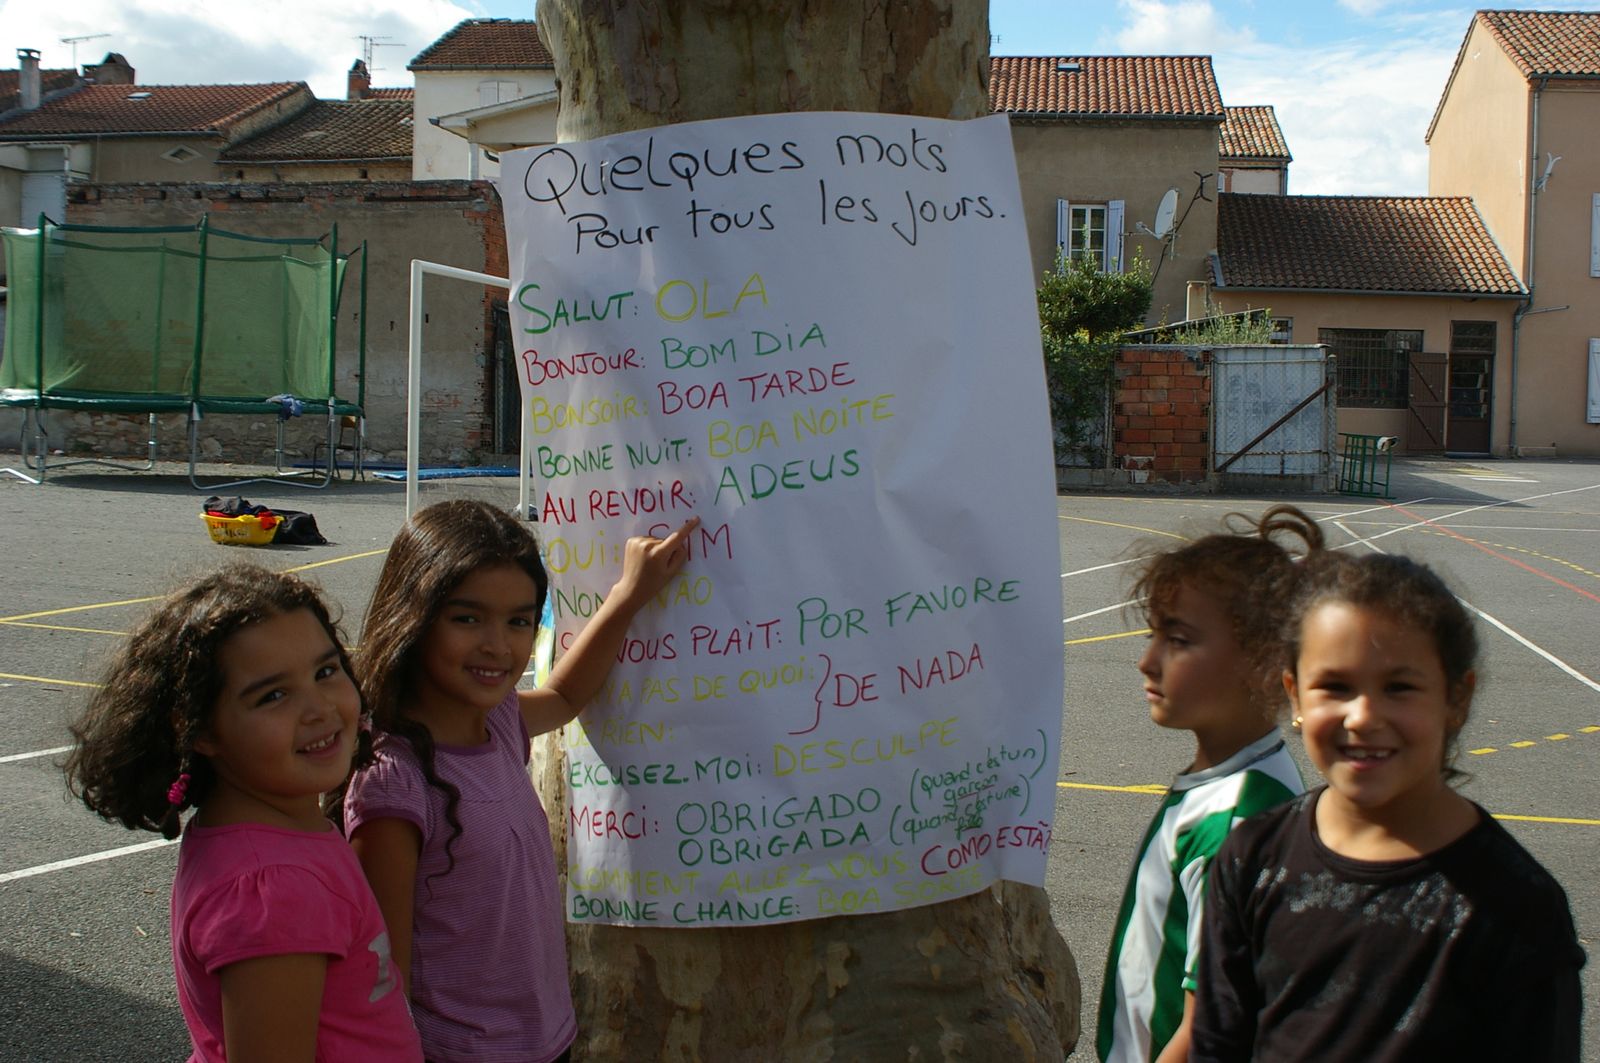 Quelques mots
Pour tous les jours.
SALUT: OLA
BONJOUR: BOM DIA
BONSOIR: BOA TARDE
BONNE NUIT: BOA NOITE
AU REVOIR: ADEUS
OUI: SIM
NON NÃO
VOUS PLAIT: POR FAVORE
Y A PAS DE QUOI: } DE NADA
DE RIEN:
EXCUSEZ-MOI: DESCULPE
MERCI: OBRIGADO (quand c'est un garçon)
OBRIGADA (quand c'est une)
COMMENT ALLEZ VOUS COMO ESTÃ?
BONNE CHANCE: BOA SORTE